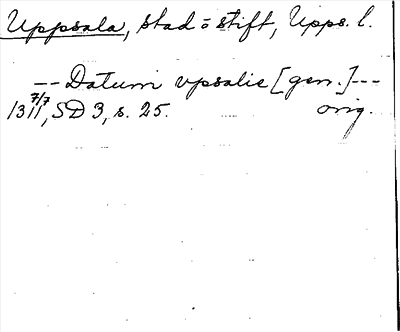 Uppsala, stad o stift, Upps. l.
-- Datum vpsalie [gen.] ---
1311 7/7, SD 3, s. 25. orig.